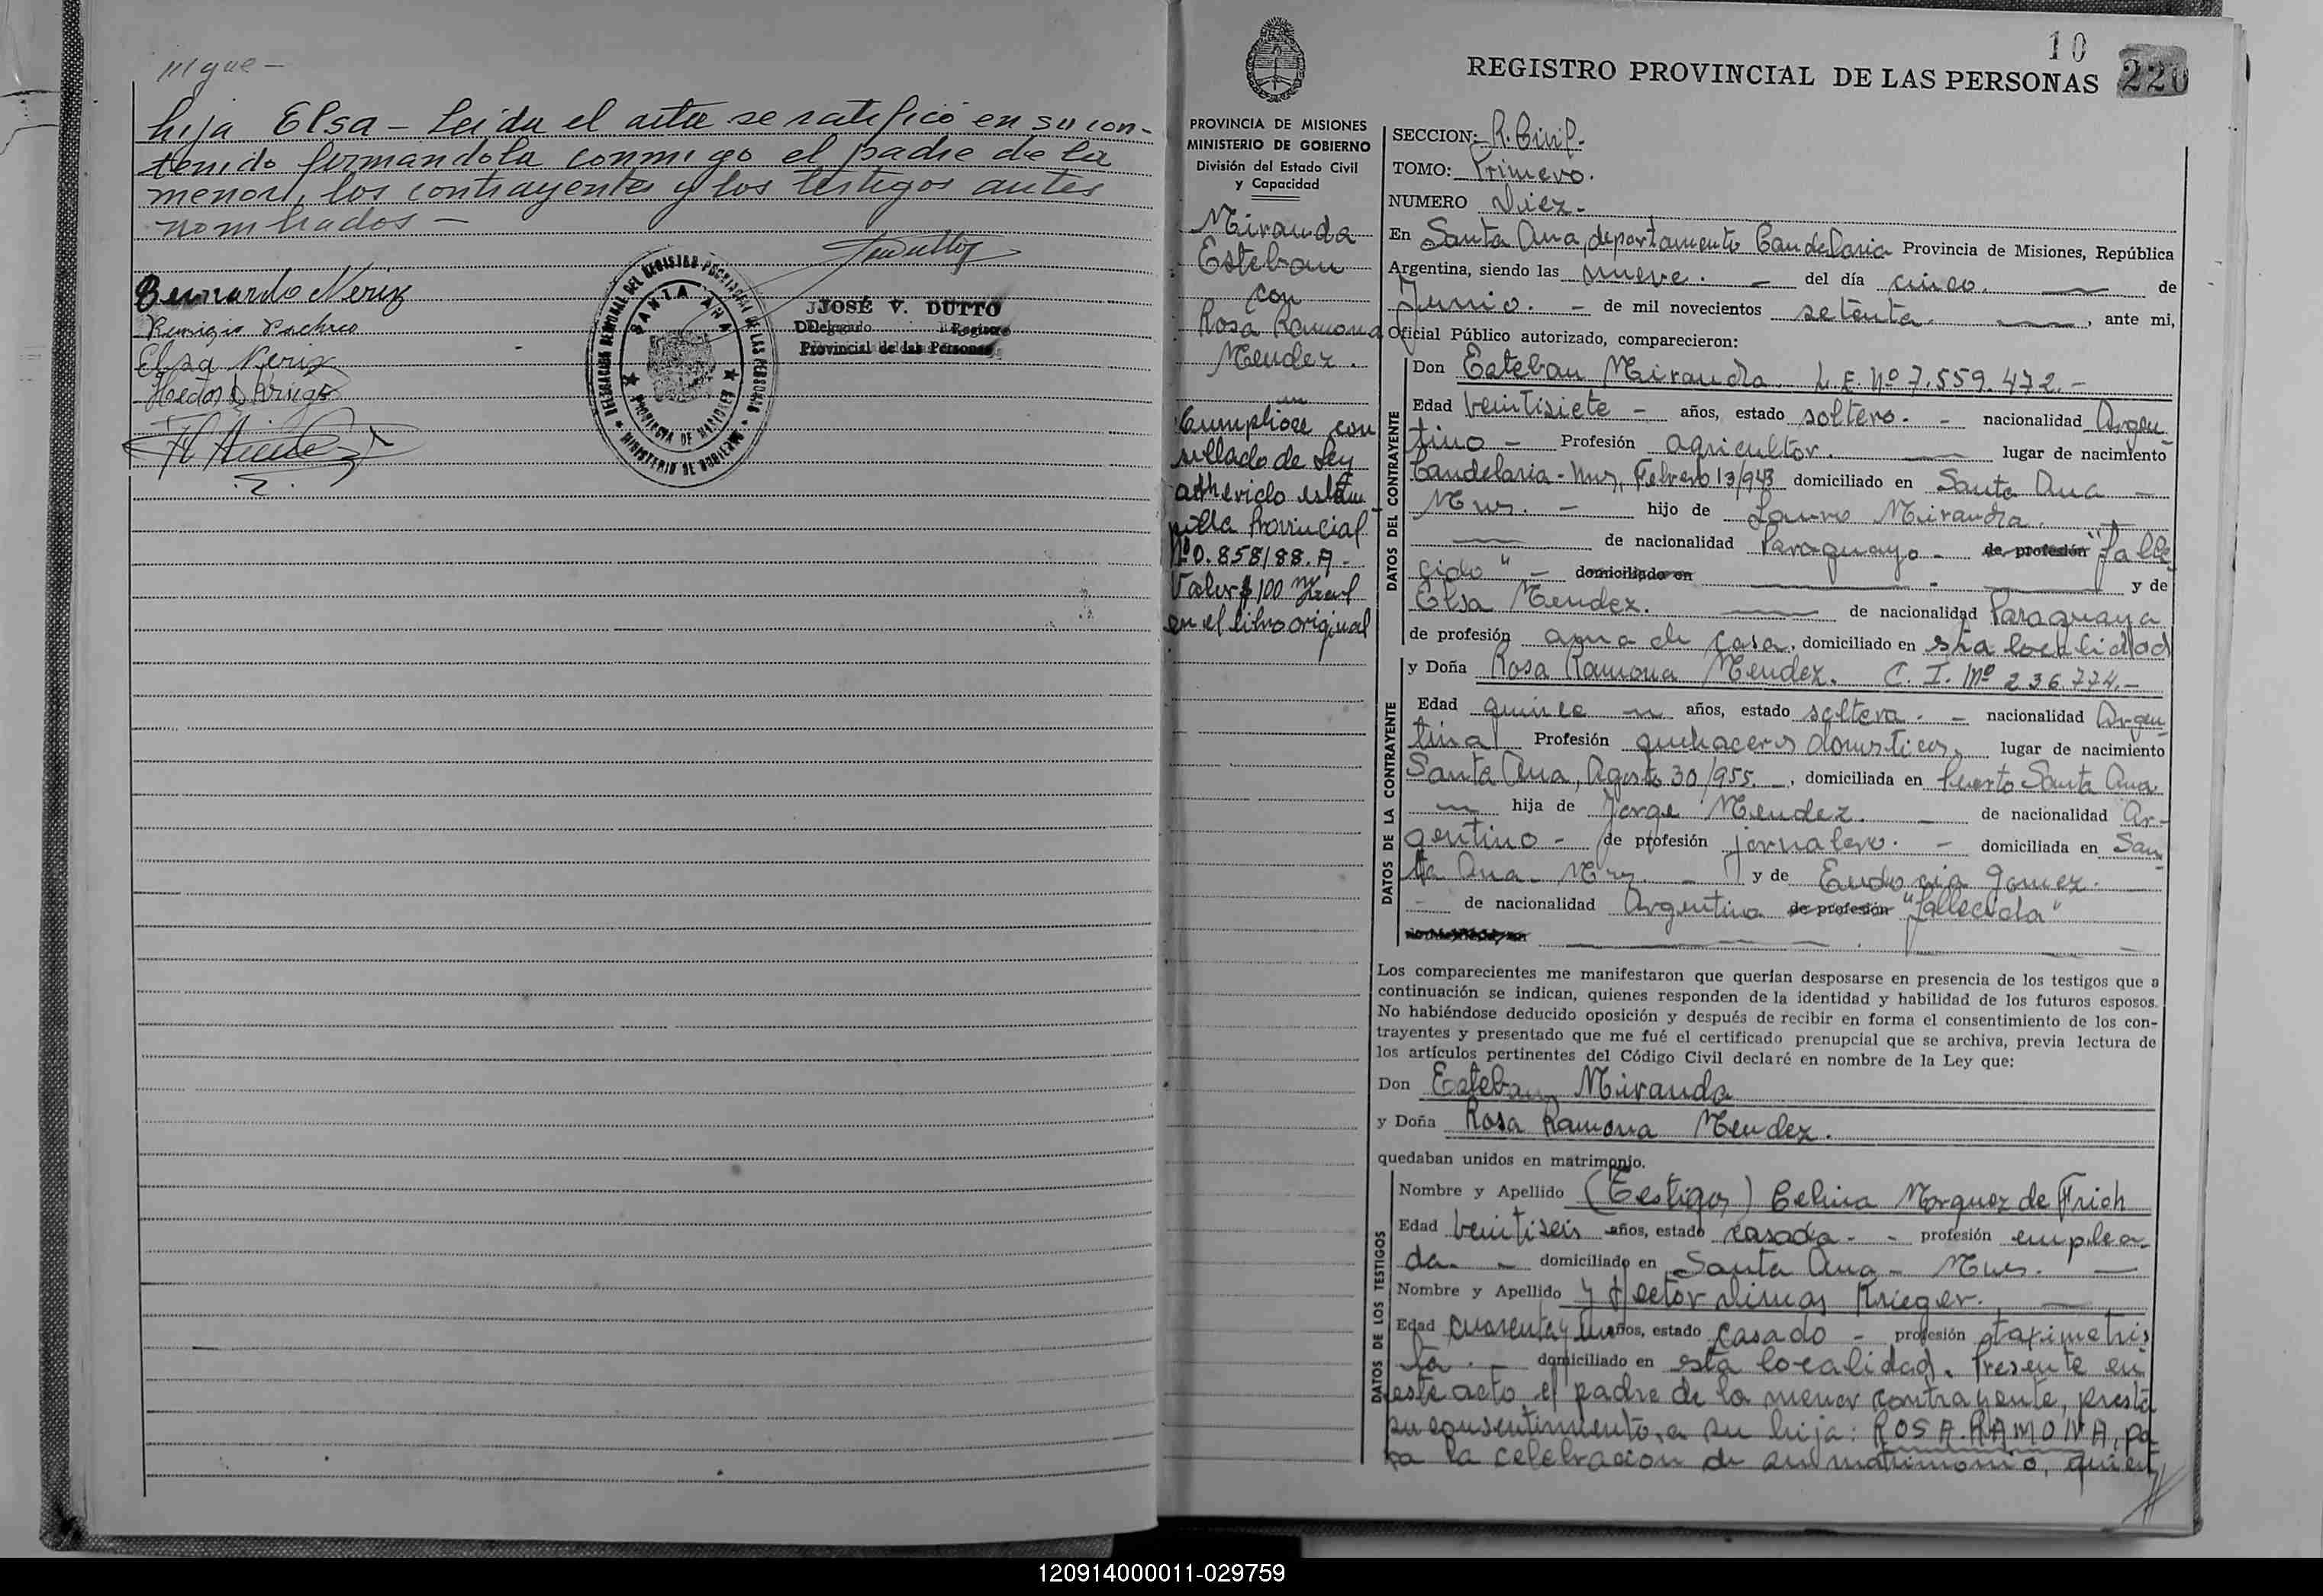 hija Elsa - Leída el acta se ratificó en su con-
tenido firmandola conmigo el padre de la
menor, los contrayentes y los testigos antes
nombrados -
Bernardo Neriz
Remigio Pacheco
Elsa Neriz
DELEGACION REGIONAL DEL REGISTRO PROVINCIAL DE LAS PERSONAS
SANTA ANA
PROVINCIA DE MISIONES
MINISTERIO DE GOBIERNO
JOSÉ V. DUTTO
Delegado Registro
Provincial de las Personas
10
REGISTRO PROVINCIAL DE LAS PERSONAS 220
PROVINCIA DE MISIONES
MINISTERIO DE GOBIERNO
División del Estado Civil
y Capacidad
Miranda
Esteban
con
Rosa Ramona
Mendez.
Cumplióse con
sellado de Ley
adherido estam
pilla Provincial
Nº 0.858188.A.-
Valor $ 100 m/nal
en el libro original
SECCION: R. Civil.
TOMO: Primero.
NUMERO Diez.
En Santa Ana, departamento Candelaria Provincia de Misiones, República
Argentina, siendo las nueve. - del día cinco. de
Junio. - de mil novecientos setenta. , ante mi,
Oficial Público autorizado, comparecieron:
DATOS DEL CONTRAYENTE
Don Esteban Miranda. L.E. Nº 7.559.472.-
Edad veintisiete - años, estado soltero. - nacionalidad Argen
tino - Profesión agricultor. lugar de nacimiento
Candelaria - Mnes, Febrero 13/943 domiciliado en Santa Ana -
Mnes. - hijo de Lauro Miranda.
de nacionalidad Paraguayo - de profesión "falle
cido" - domiciliado en y de
Elsa Mendez. de nacionalidad Paraguaya
de profesión ama de casa, domiciliado en sta localidad
DATOS DE LA CONTRAYENTE
y Doña Rosa Ramona Mendez. C. I. Nº 236.774.-
Edad quince años, estado soltera. - nacionalidad Argen
tina Profesión quehaceres domesticos, lugar de nacimiento
Santa Ana, Agosto 30/955. -, domiciliada en Puerto Santa Ana.
hija de Jorge Mendez. - de nacionalidad Ar-
gentino - de profesión jornalero. - domiciliada en San
ta Ana - Mnes. - y de Eudosia Gomez.
- de nacionalidad Argentina de profesión "fallecida"
Los comparecientes me manifestaron que querían desposarse en presencia de los testigos que a
continuación se indican, quienes responden de la identidad y habilidad de los futuros esposos.
No habiéndose deducido oposición y después de recibir en forma el consentimiento de los con-
trayentes y presentado que me fué el certificado prenupcial que se archiva, previa lectura de
los artículos pertinentes del Código Civil declaré en nombre de la Ley que:
Don Esteban Miranda
y Doña Rosa Ramona Mendez.
quedaban unidos en matrimonio.
DATOS DE LOS TESTIGOS
Nombre y Apellido (Testigos) Celina Marquez de Frich
Edad veintiseis años, estado casada - - profesión emplea-
da. - domiciliado en Santa Ana - Mnes. -
Nombre y Apellido y Hector Dimas Krieger.
Edad cuarenta y un años, estado casado - profesión taximetris
ta. - domiciliado en esta localidad. Presente en
este acto el padre de la menor contrayente, presta
su consentimiento, a su hija: ROSA RAMONA, pa-
ra la celebracion de su matrimonio, quien
120914000011-029759